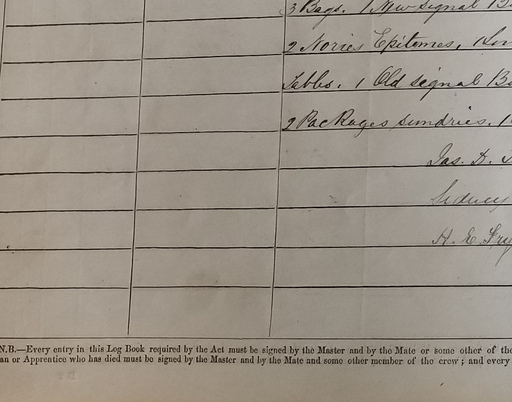 3 Bags. 1 New signal B
2 Nories Epitomes. 1
Tables. 1 Old signal B
2 Packages sundries. 1
Jas. D.
Sidney
H. E. Fry
N.B.—Every entry in this Log Book required by the Act must be signed by the Master and by the Mate or some other of the
an or Apprentice who has died must be signed by the Master and by the Mate and some other member of the crew; and every